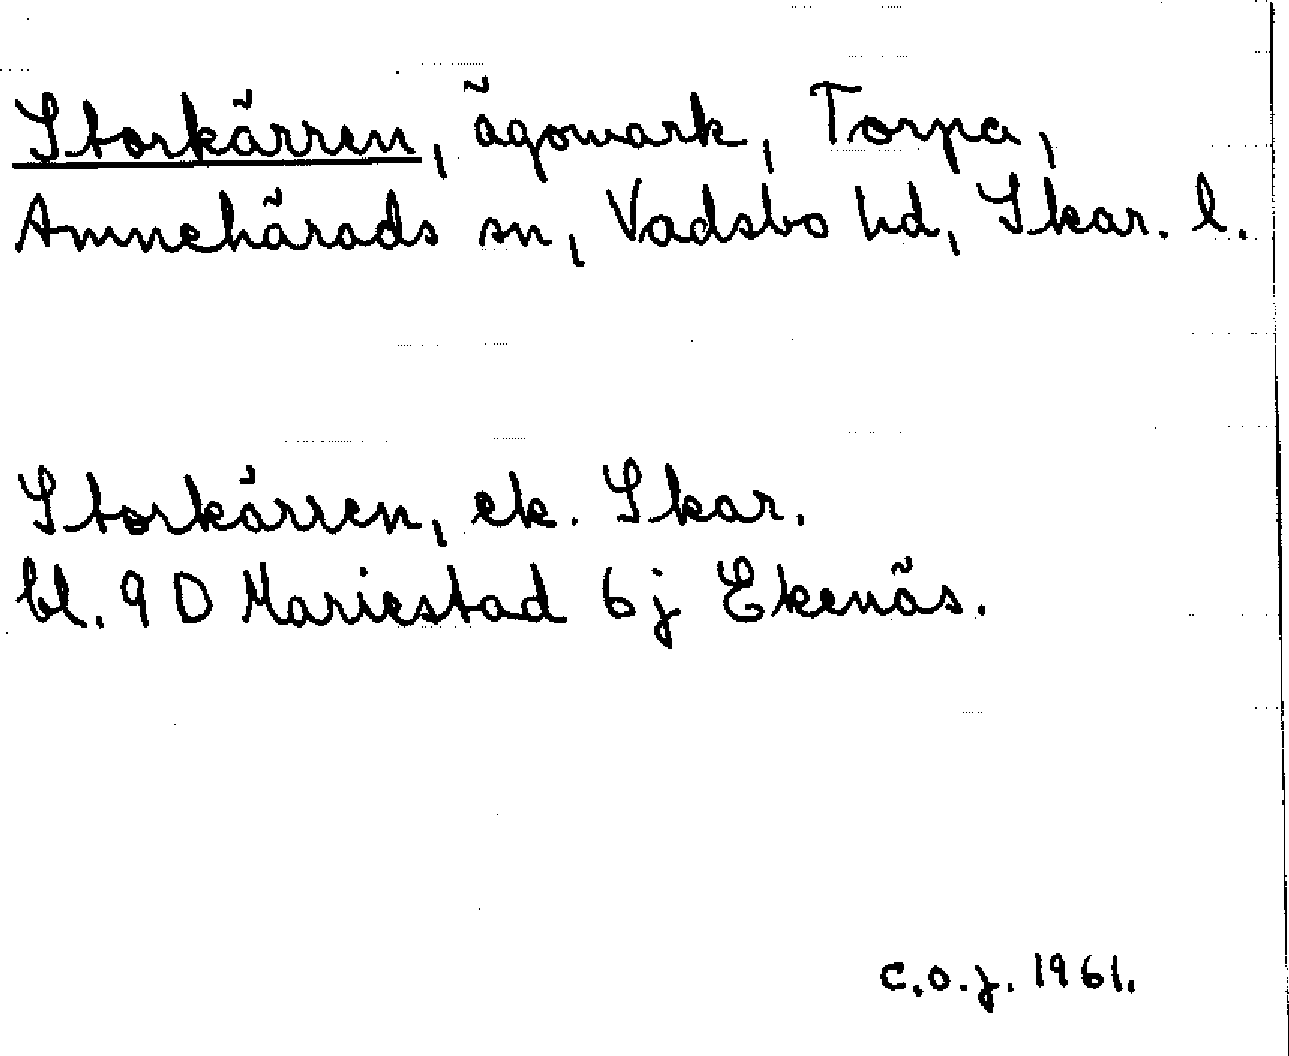 Storkärren, ägomark, Torpa,
Amnehärads sn, Vadsbo hd, Skar. l.
Storkärren, ek. Skar.
bl. 9 D Mariestad 6 j Ekenäs.
C.O.J. 1961.